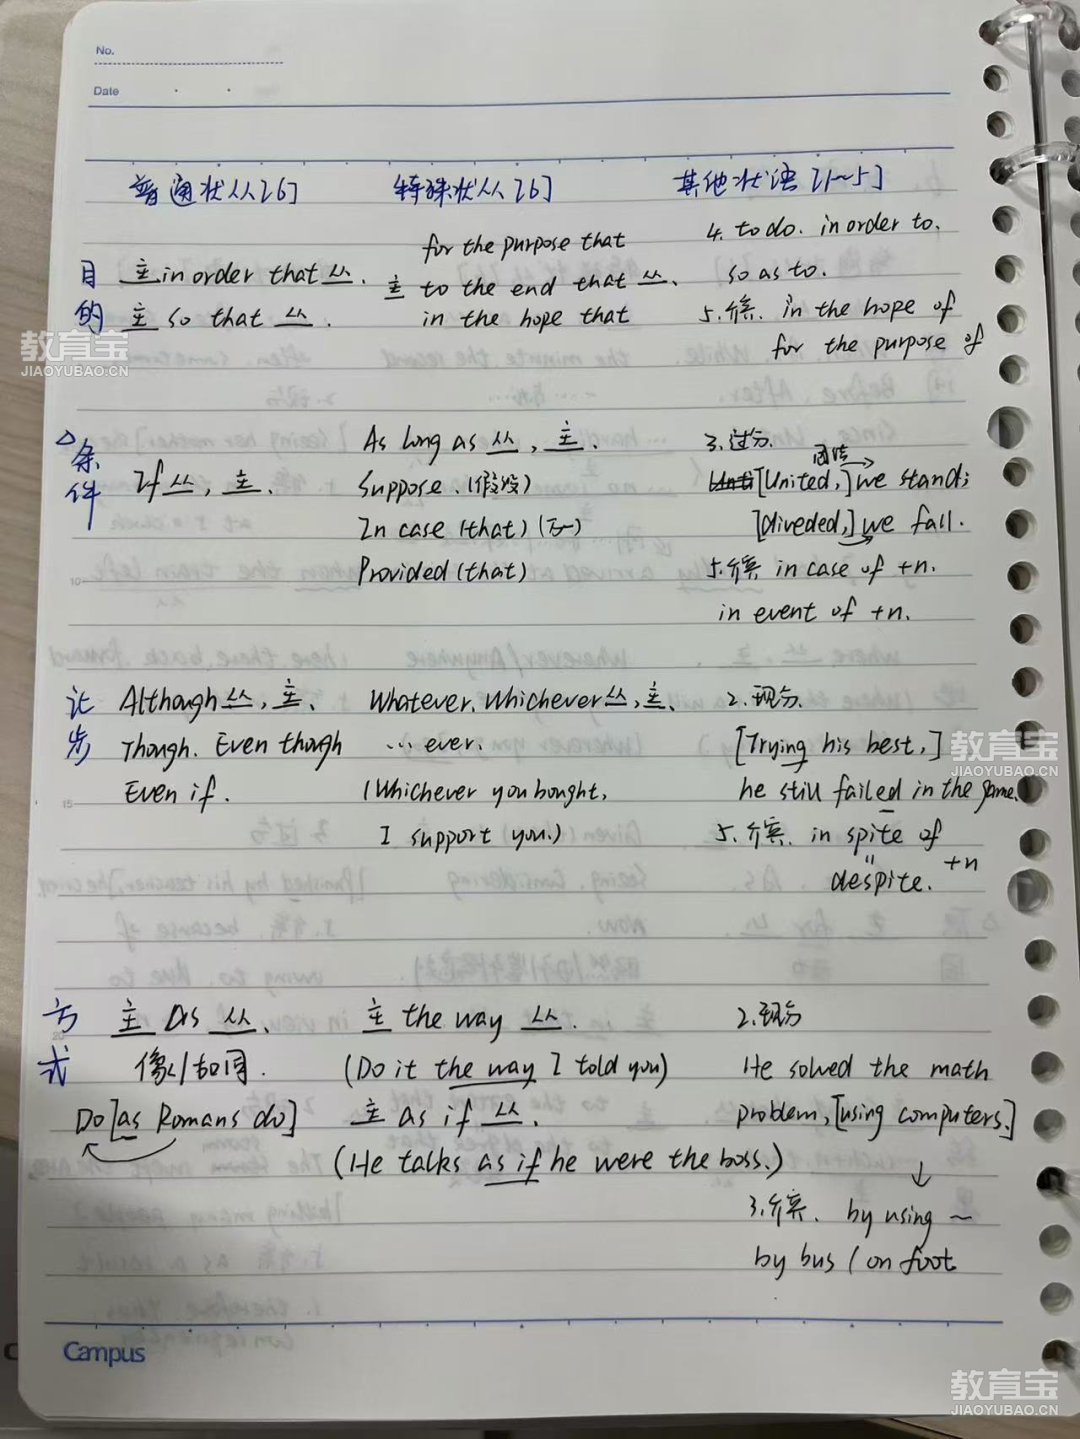 No.
Date
普通状从[6] 特殊状从[6] 其他状语[1~5]
目的
主 in order that 从.
主 so that 从.
for the purpose that
主 to the end that 从.
in the hope that
4. to do. in order to.
so as to.
5. 介宾. in the hope of
for the purpose of
△条件
If 从, 主.
As long as 从, 主.
Suppose. (假设)
In case (that) (万一)
Provided (that)
3. 过分.
团结
[United,] we stand;
[diveded,] we fall.
5. 介宾 in case of +n.
in event of +n.
让步
Although 从, 主.
Though. Even though
Even if.
Whatever. Whichever 从, 主.
... ever.
(Whichever you bought,
I support you.)
2. 现分.
[Trying his best,]
he still failed in the game.
5. 介宾. in spite of
=
despite. +n
方式
主 as 从.
像/如同.
Do [as Romans do]
主 the way 从.
(Do it the way I told you)
主 as if 从.
(He talks as if he were the boss.)
2. 现分
He solved the math
problem, [using computers.]
3. 介宾. by using ~
by bus / on foot
Campus
教育宝
JIAOYUBAO.CN
教育宝
JIAOYUBAO.CN
教育宝
JIAOYUBAO.CN